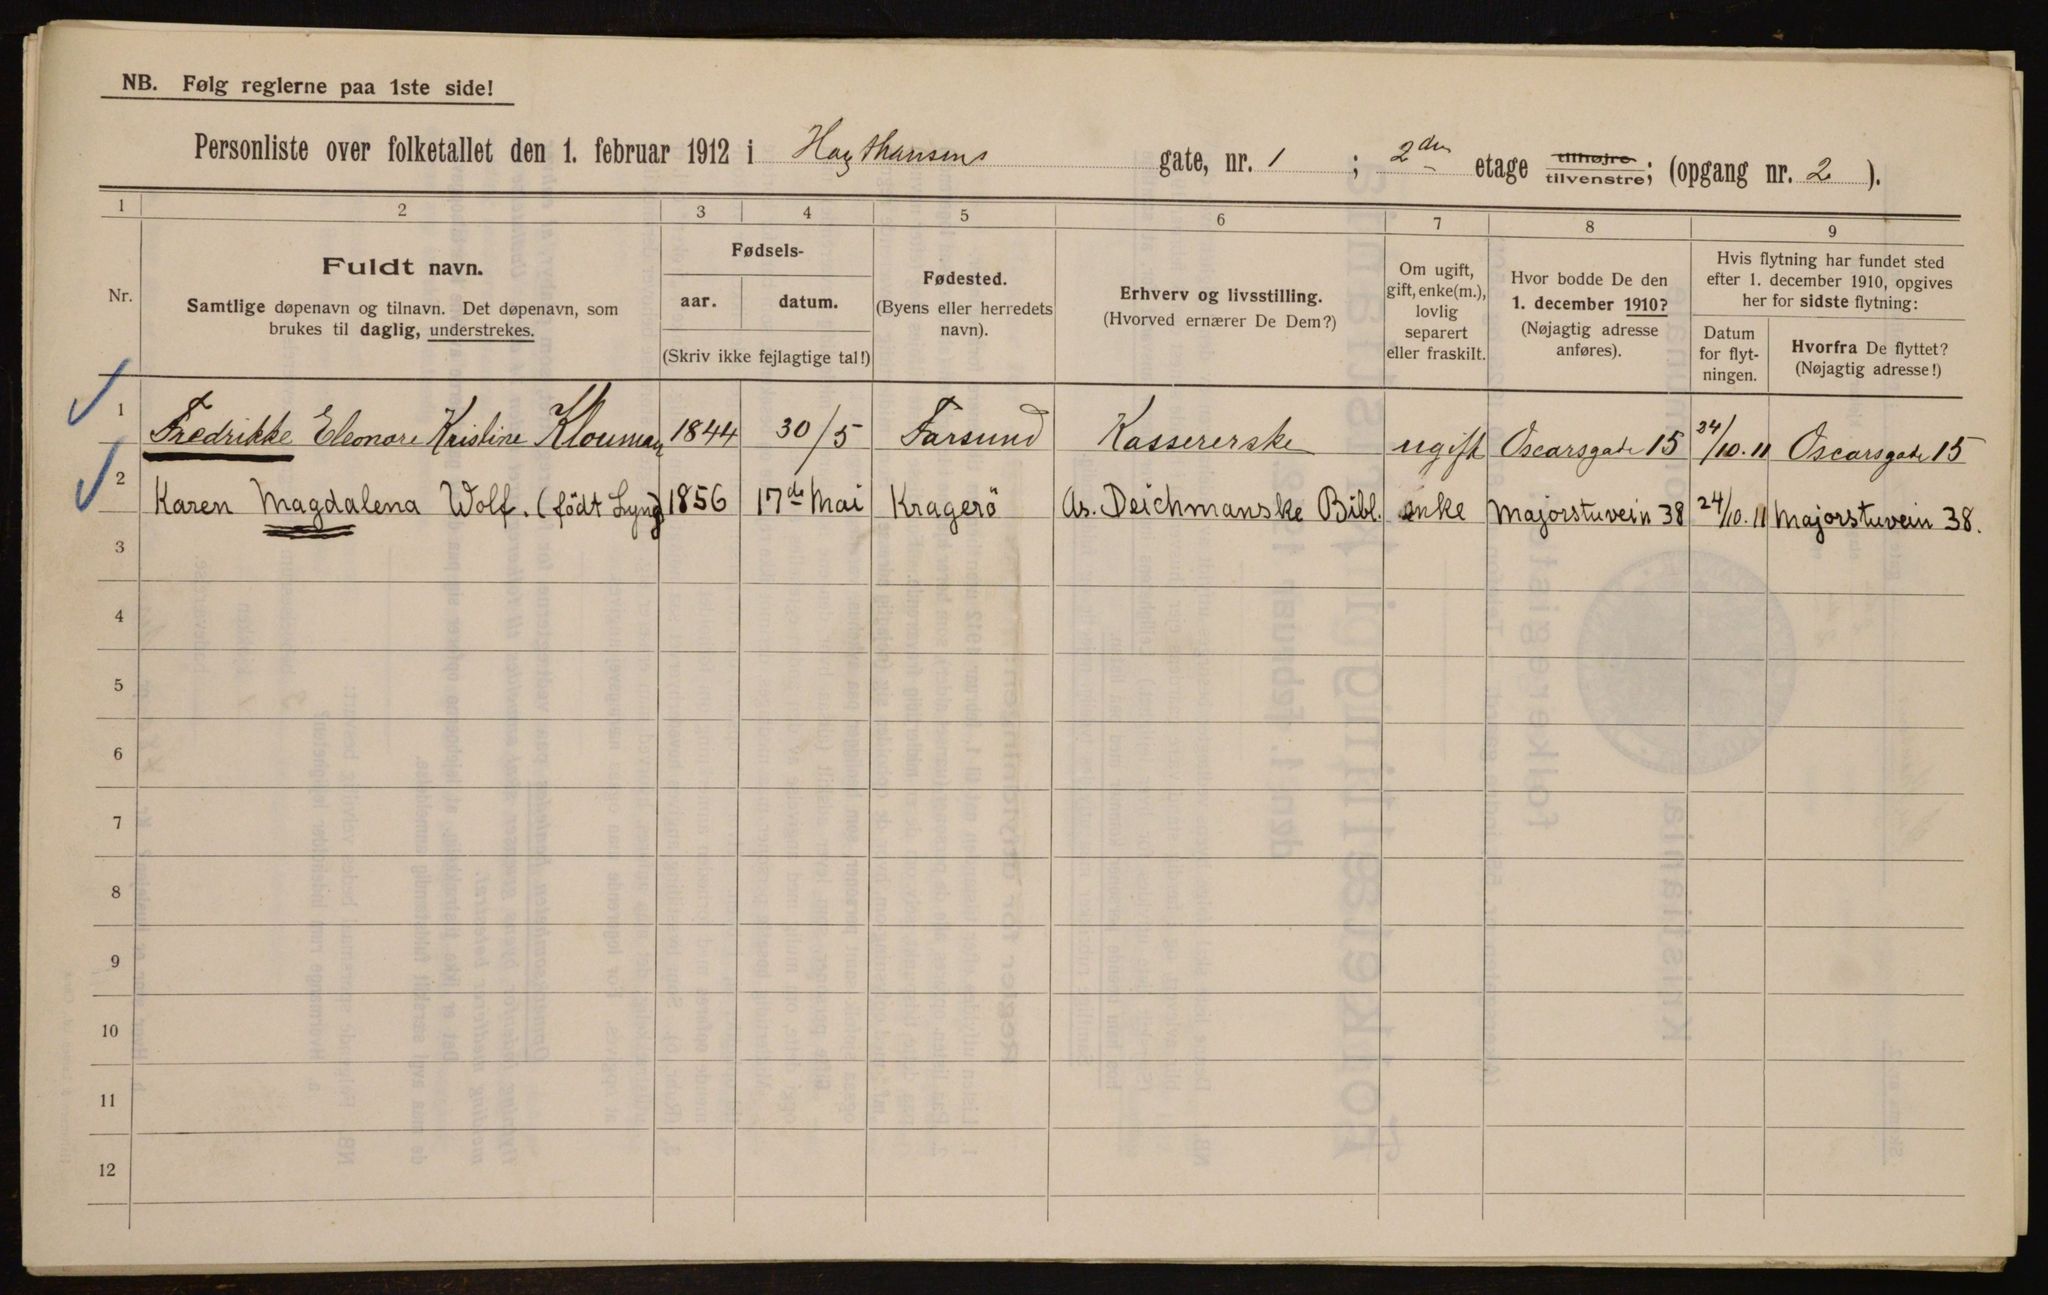 NB. Følg reglerne paa 1ste side!
Personliste over folketallet den 1. februar 1912 i Haxthausens gate, nr. 1 ; 2den etage tilhøjre tilvenstre; (opgang nr. 2 ).
1 2 3 4 5 6 7 8 9
Nr.
Fuldt navn.
Samtlige døpenavn og tilnavn. Det døpenavn, som
brukes til daglig, understrekes.
Fødsels-
aar. datum.
(Skriv ikke fejlagtige tal!)
Fødested.
(Byens eller herredets
navn).
Erhverv og livsstilling.
(Hvorved ernærer De Dem?)
Om ugift,
gift, enke(m.),
lovlig
separert
eller fraskilt.
Hvor bodde De den
1. december 1910?
(Nøjagtig adresse
anføres).
Hvis flytning har fundet sted
efter 1. december 1910, opgives
her for sidste flytning:
Datum
for flyt-
ningen.
Hvorfra De flyttet?
(Nøjagtig adresse!)
1 Fredrikke Eleonore Kristine Klouman 1844 30/5 Farsund Kassererske ugift Oscarsgade 15 24/10.11 Oscarsgade 15
2 Karen Magdalena Wolf. (födt Lyng) 1856 17de Mai Kragerö As. Deichmanske Bibl. enke Majorstuvein 38 24/10.11 Majorstuvein 38.
3
4
5
6
7
8
9
10
11
12